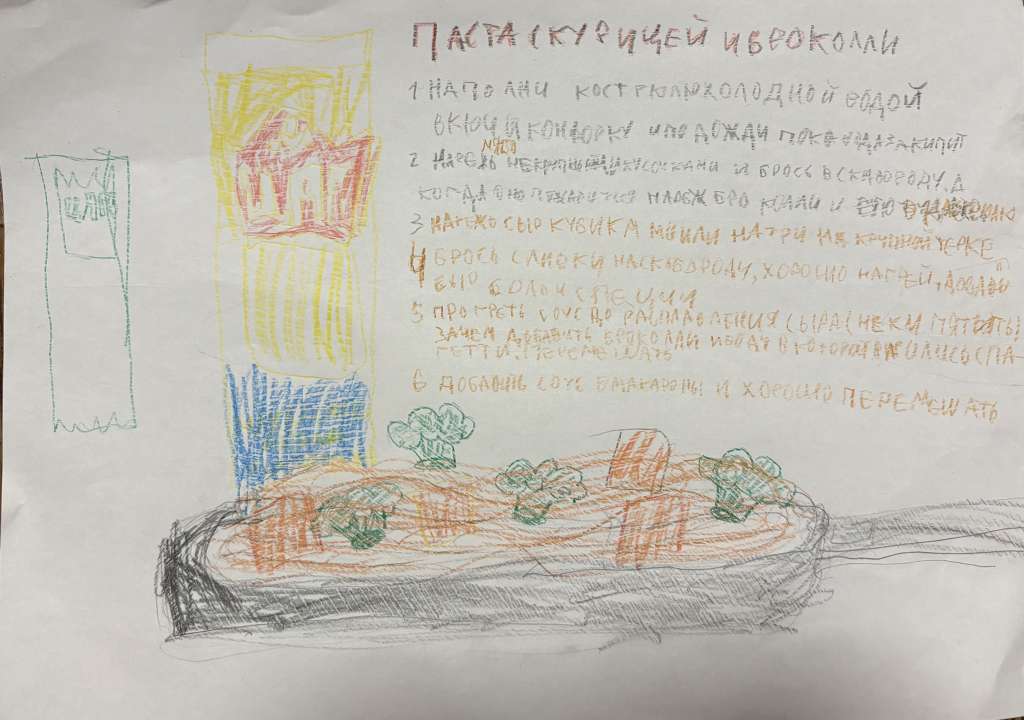 ПАСТА С КУРИЦЕЙ И БРОКОЛЛИ
1 НАПОЛНИ КОСТРЮЛЮ ХОЛОДНОЙ ВОДОЙ
ВКЮЧИ КОНФОРКУ И ПОДОЖДИ ПОКА ВОДА ЗАКИПИТ
МЯСО
2 НАРЕЖЬ НЕКРУПНЫМИ КУСОЧКАМИ И БРОСЬ В СКАВОРОДУ, А
КОГДА ОНО ПОЖАРИТСЯ НАРЕЖ БРОКОЛЛИ И
3 НАРЕЖЬ СЫР КУБИКАМИ ИЛИ НАТРИ НА КРУПНОЙ ТЕРКЕ
4 БРОСЬ СЛИВКИ НА СКОВОРОДУ, ХОРОШО НАГРЕЙ, ДОБАВЬ
СЫР СОЛЬ И СПЕЦИИ
5 ПРОГРЕТЬ СОУС ДО РАСПЛАВЛЕНИЯ СЫРА (НЕ КИПЯТИТЬ)
ЗАТЕМ ДОБАВИТЬ БРОКОЛЛИ И ВОДУ В КОТОРОЙ ВАРИЛИСЬ СПА-
ГЕТТИ. ПЕРЕМЕШАТЬ
6 ДОБАВИТЬ СОУС В МАКАРОНЫ И ХОРОШО ПЕРЕМЕШАТЬ